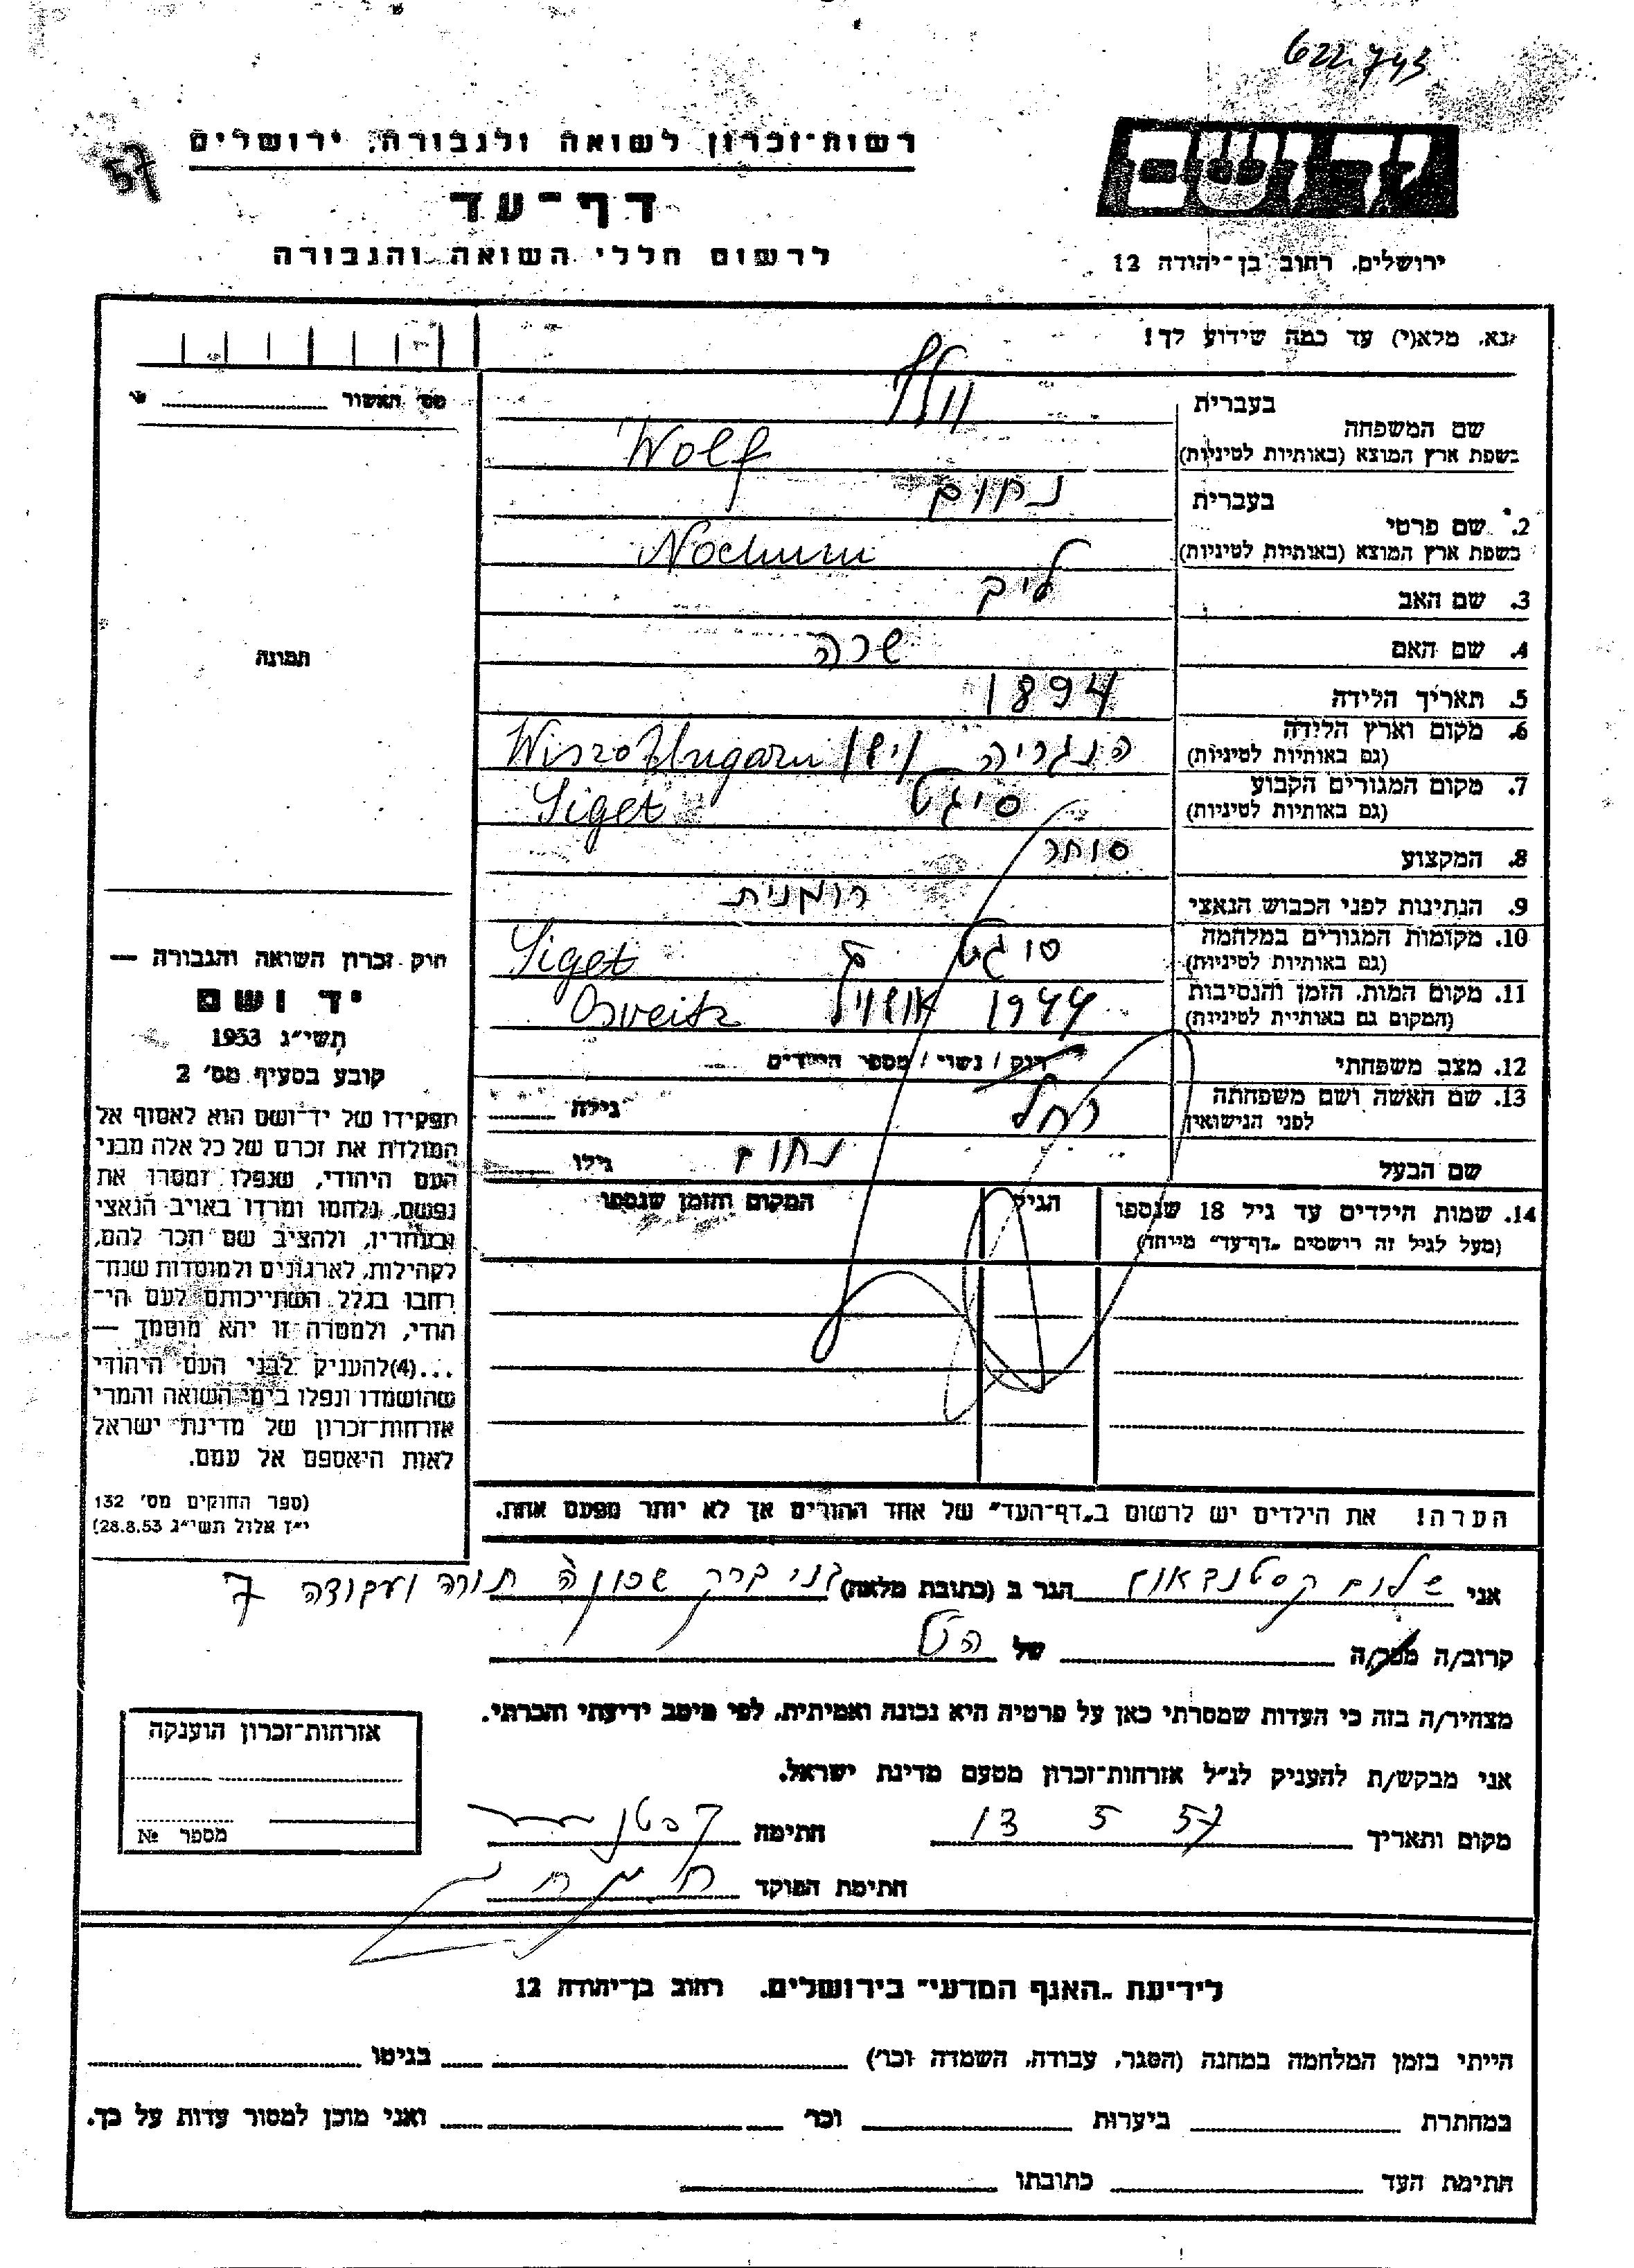 622.743
57
רשות־זכרון לשואה ולגבורה, ירושלים
דף־עד
לרשום חללי השואה והגבורה
ירושלים, רחוב בן־יהודה 12
נא, מלא(י) עד כמה שידוע לך!
מס' האשור
תמונה
בעברית
שם המשפחה
וולף
בשפת ארץ המוצא (באותיות לטיניות)
Wolf
בעברית
2. שם פרטי
נחום
בשפת ארץ המוצא (באותיות לטיניות)
Nochum
3. שם האב ליב
4. שם האם שרה
5. תאריך הלידה 1894
6. מקום וארץ הלידה
(גם באותיות לטיניות)
הנגריה
7. מקום המגורים הקבוע
(גם באותיות לטיניות)
סיגט Siget
8. המקצוע סוחר
9. הנתינות לפני הכבוש הנאצי רומנית
10. מקומות המגורים במלחמה
(גם באותיות לטיניות)
Siget
11. מקום המות, הזמן והנסיבות
(המקום גם באותיית לטיניות)
1944 Osveitz
12. מצב משפחתי רוק / נשוי / מספר הילדים
13. שם האשה ושם משפחתה
לפני הנישואין
רחל גילה
שם הבעל נחום גילו
14. שמות הילדים עד גיל 18 שנספו
(מעל לגיל זה רושמים „דף־עד” מייחד)
הגיל
המקום והזמן שנספו
הערה! את הילדים יש לרשום ב„דף־העד” של אחד ההורים אך לא יותר מפעם אחת.
חוק זכרון השואה והגבורה —
יד ושם
תשי״ג 1953
קובע בסעיף מס' 2
תפקידו של יד־ושם הוא לאסוף אל
המולדת את זכרם של כל אלה מבני
העם היהודי, שנפלו ומסרו את
נפשם, נלחמו ומרדו באויב הנאצי
ובעוזריו, ולהציב שם וזכר להם,
לקהילות, לארגונים ולמוסדות שנח־
רחבו בגלל השתייכותם לעם הי־
הודי, ולמטרה זו יהא מוסמך —
...(4)להעניק לבני העם היהודי
שהושמדו ונפלו בימי השואה והמרי
אזרחות־זכרון של מדינת ישראל
לאות היאספם אל עמם.
(ספר החוקים מס' 132
י״ז אלול תשי״ג 28.8.53)
אני שלום הגר ב (כתובת מלאה) בני ברק שכון תורה ועבודה 7
קרוב/ה מכר/ה של
מצהיר/ה בזה כי העדות שמסרתי כאן על פרטיה היא נכונה ואמיתית, לפי מיטב ידיעתי והכרתי.
אני מבקש/ת להעניק לנ״ל אזרחות־זכרון מטעם מדינת ישראל.
מקום ותאריך 13 5 57 חתימה
חתימת הפוקד
אזרחות־זכרון הוענקה
מספר №
לידיעת „האגף המדעי” בירושלים, רחוב בן־יהודה 12
הייתי בזמן המלחמה במחנה (הסגר, עבודה, השמדה וכו') בגיטו
במחתרת ביערות וכו' ואני מוכן למסור עדות על כך.
חתימת העד כתובתו